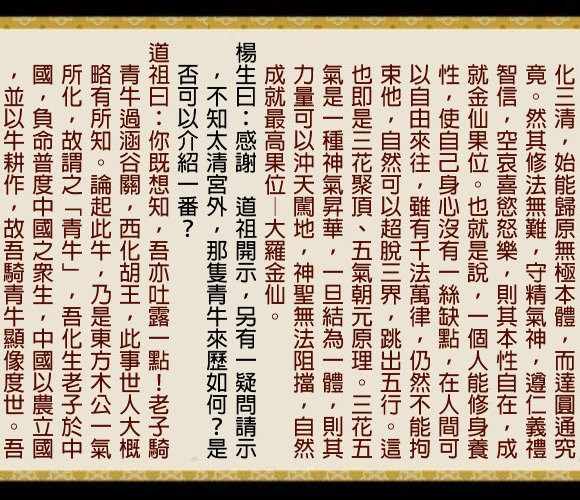 化三清，始能歸原無極本體，而達圓通究
竟。然其修法無難，守精氣神，遵仁義禮
智信，空哀喜慾怒樂，則其本性自在，成
就金仙果位。也就是說，一個人能修身養
性，使自己身心沒有一絲缺點，在人間可
以自由來往，雖有千法萬律，仍然不能拘
束他，自然可以超脫三界，跳出五行。這
也即是三花聚頂、五氣朝元原理。三花五
氣是一種神氣昇華，一旦結為一體，則其
力量可以沖天闊地，神聖無法阻擋，自然
成就最高果位—大羅金仙。
楊生曰：感謝　道祖開示，另有一疑問請示
，不知太清宮外，那隻青牛來歷如何？是
否可以介紹一番？
道祖曰：你既想知，吾亦吐露一點！老子騎
青牛過涵谷關，西化胡王，此事世人大概
略有所知。論起此牛，乃是東方木公一氣
所化，故謂之「青牛」，吾化生老子於中
國，負命普度中國之衆生，中國以農立國
，並以牛耕作，故吾騎青牛顯像度世。吾